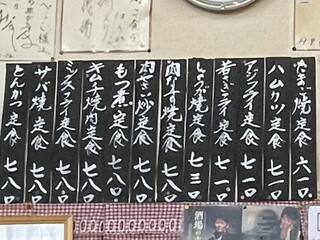 たまご焼定食 六一〇.
ハムカツ定食 七一〇.
アジフライ定食 七一〇.
若さぎフライ定食 七一〇.
しょうが焼定食 七三〇
焼定食 七八〇.
肉 炒定食 七八〇.
もつ煮定食 七八〇.
キムチ焼肉定食 七八〇.
ミックスフライ定食 七八〇.
サバ焼定食 七八〇.
とんかつ定食 七八〇.
酒場